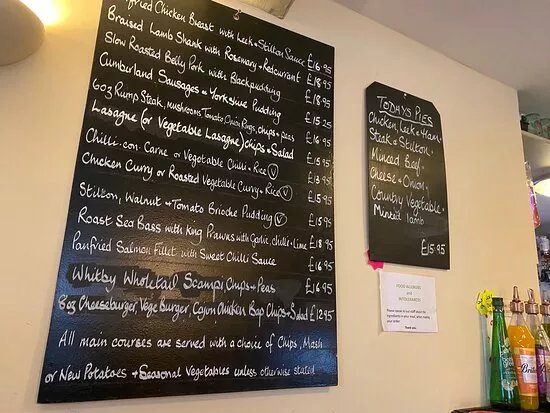 fried Chicken Breast with Leek & Stilton Sauce £16.95
Braised Lamb Shank with Rosemary & Redcurrant £18.95
Slow Roasted Belly Pork with Blackpudding £18.95
Cumberland Sausages & Yorkshire Pudding £15.25
6oz Rump Steak, mushrooms, Tomato, Onion Rings, chips & peas £16.95
Lasagne (or Vegetable Lasagne) chips & Salad £15.95
Chilli-con Carne or Vegetable Chilli & Rice (V) £13.95
Chicken Curry or Roasted Vegetable Curry & Rice (V) £15.95
Stilton, Walnut & Tomato Brioche Pudding (V) £15.95
Roast Sea Bass with King Prawns with Garlic, chilli & Lime £18.95
Panfried Salmon Fillet with Sweet Chilli Sauce £16.95
Whitby Wholetail Scampi, Chips & Peas £16.95
8oz Cheeseburger, Vege Burger, Cajun Chicken Bap Chips & Salad £12.95
All main courses are served with a choice of Chips, Mash
or New Potatoes & Seasonal Vegetables unless otherwise stated
TODAYS PIES
Chicken, Leek & Ham.
Steak & Stilton.
Minced Beef.
Cheese & Onion.
Country Vegetable.
Minted lamb
£15.95
FOOD ALLERGIES
and
INTOLERANCES
Please speak to our staff about the
ingredients in your meal, when making
your order.
Thank you.